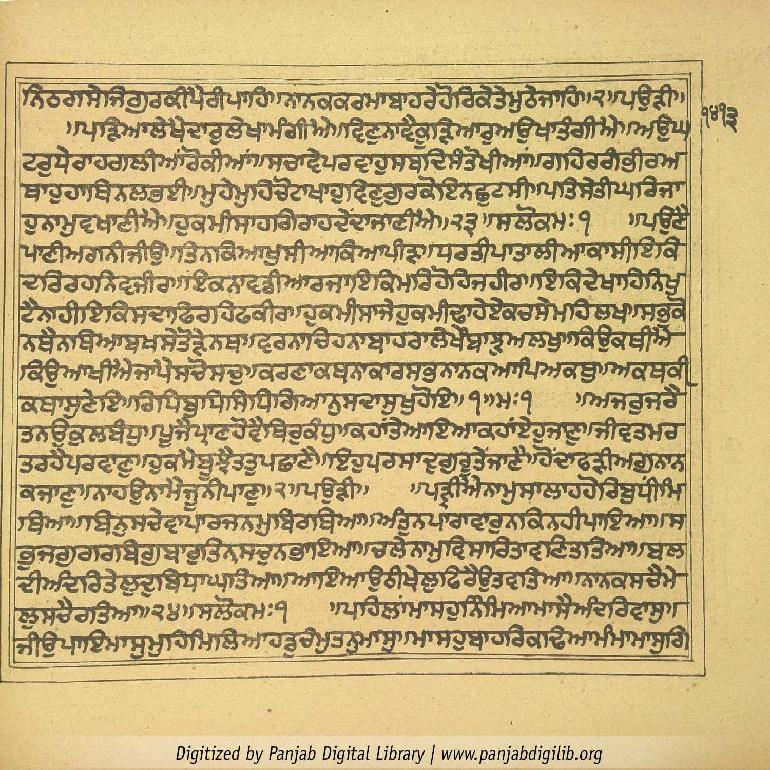 ਨਿਠਗਸੇਜਿਗੁਰਕੀਪੈਰੀਪਾਹਿ॥ਨਾਨਕਕਰਮਾਬਾਹਰੇਹੋਰਿਕੇਤੇਮੁਠੇਜਾਹਿ॥੨॥ਪਉੜੀ॥
॥ਪੜਿਆਲੇਖੇਦਾਰੁਲੇਖਾਮੰਗੀਐ॥ਵਿਣੁਨਾਵੈਕੂੜਿਆਰੁਅਉਖਾਤੰਗੀਐ॥ਅਉਘ
੧੪੧੩
ਟਰੁਧੇਰਾਹਗਲੀਆਂਰੋਕੀਆਂ॥ਸਚਾਵੇਪਰਵਾਹੁਸਬਦਿਸੰਤੋਖੀਆਂ॥ਗਹਿਰਗਭੀਰਅ
ਥਾਹੁਹਾਥਨਲਭਈ॥ਮੁਹੇਮੁਹਿਚੋਟਾਖਾਹੁਵਿਣੁਗੁਰਕੋਇਨਛੁਟਸੀ॥ਪਤਿਸੇਤੀਘਰਿਜਾ
ਹੁਨਾਮੁਵਖਾਣੀਐ॥ਹੁਕਮੀਸਾਹਗਿਰਾਹਦੇਂਦਾਜਾਣੀਐ॥੨੩॥ਸਲੋਕਮਃ੧ ॥ਪਉਣੈ
ਪਾਣੀਅਗਨੀਜੀਉ॥ਤਿਨਕਿਆਖੁਸੀਆਕਿਆਪੀੜ॥ਧਰਤੀਪਾਤਾਲੀਆਕਾਸੀਇਕਿ
ਦਰਿਰਹਨਿਵਜੀਰ॥ਇਕਨਾਵਡੀਆਰਜਾਇਕਿਮਰਿਹੋਹਿਜਹੀਰ॥ਇਕਿਦੇਖਾਹਿਨਿਖੁ
ਟੈਨਾਹੀਇਕਿਸਦਾਫਿਰਹਿਫਕੀਰ॥ਹੁਕਮੀਸਾਜੇਹੁਕਮੀਢਾਹੇਏਕਚਸੇਮਹਿਲਖ॥ਸਭੁਕੋ
ਨਥੈਨਥਿਆਬਖਸੇਤੋੜੇਨਥ॥ਵਰਨਾਚਿਹਨਾਬਾਹਰਾਲੇਖੇਬਾਝੁਅਲਖੁ॥ਕਿਉਕਥੀਐ
ਕਿਉਆਖੀਐਜਾਪੈਸਚੋਸਚੁ॥ਕਰਣਾਕਥਨਾਕਾਰਸਭਨਾਨਕਆਪਿਅਕਥੁ॥ਅਕਥਕੀ
ਕਥਾਸੁਣੇਇ॥ਰਿਧਿਬੁਧਿਸਿਧਿਗਿਆਨੁਸਦਾਸੁਖੁਹੋਇ॥੧॥ਮਃ੧ ॥ਅਜਰੁਜਰੈ
ਤਨਉਕੁਲਬੰਧੁ॥ਪੂਜੈਪ੍ਰਾਣਹੋਵੈਥਿਰੁਕੰਧੁ॥ਕਹਾਂਤੇਆਇਆਕਹਾਂਏਹੁਜਾਣੁ॥ਜੀਵਤਮਰ
ਤਰਹੈਪਰਵਾਣੁ॥ਹੁਕਮੈਬੂਝੈਤਤੁਪਛਾਣੈ॥ਇਹੁਪਰਸਾਦੁਗੁਰੂਤੇਜਾਣੈ॥ਹੋਂਦਾਫੜੀਅਗੁਨਾਨ
ਕਜਾਣੁ॥ਨਾਹਉਨਾਮੈਜੂਨੀਪਾਣੁ॥੨॥ਪਉੜੀ॥ ॥ਪੜ੍ਹੀਐਨਾਮੁਸਾਲਾਹਹੋਰਿਬੁਧੀਮਿ
ਥਿਆ॥ਬਿਨੁਸਚੇਵਾਪਾਰਜਨਮੁਬਿਰਥਿਆ॥ਅੰਤੁਨਪਾਰਾਵਾਰੁਨਕਿਨਹੀਪਾਇਆ॥ਸ
ਭੁਜਗੁਗਰਬਿਗੁਬਾਰੁਤਿਨਸਚੁਨਭਾਇਆ॥ਚਲੇਨਾਮੁਵਿਸਾਰਿਤਾਵਣਿਤਤਿਆ॥ਬਲ
ਦੀਅੰਦਰਿਤੇਲੁਦੁਬਿਧਾਘਤਿਆ॥ਆਇਆਉਠੀਖੇਲੁਫਿਰੈਉਤਵਤਿਆ॥ਨਾਨਕਸਚੈਮੇ
ਲੁਸਚੈਰਤਿਆ॥੨੪॥ਸਲੋਕਮਃ੧ ॥ਪਹਿਲਾਂਮਾਸਹੁਨਿੰਮਿਆਮਾਸੈਅੰਦਰਿਵਾਸੁ॥
ਜੀਉਪਾਇਮਾਸੁਮੁਹਿਮਿਲਿਆਹਡੁਚੰਮੁਤਨੁਮਾਸੁ॥ਮਾਸਹੁਬਾਹਰਿਕਢਿਆਮੰਮਾਮਾਸੁਗਿ
Digitized by Panjab Digital Library | www.panjabdigilib.org